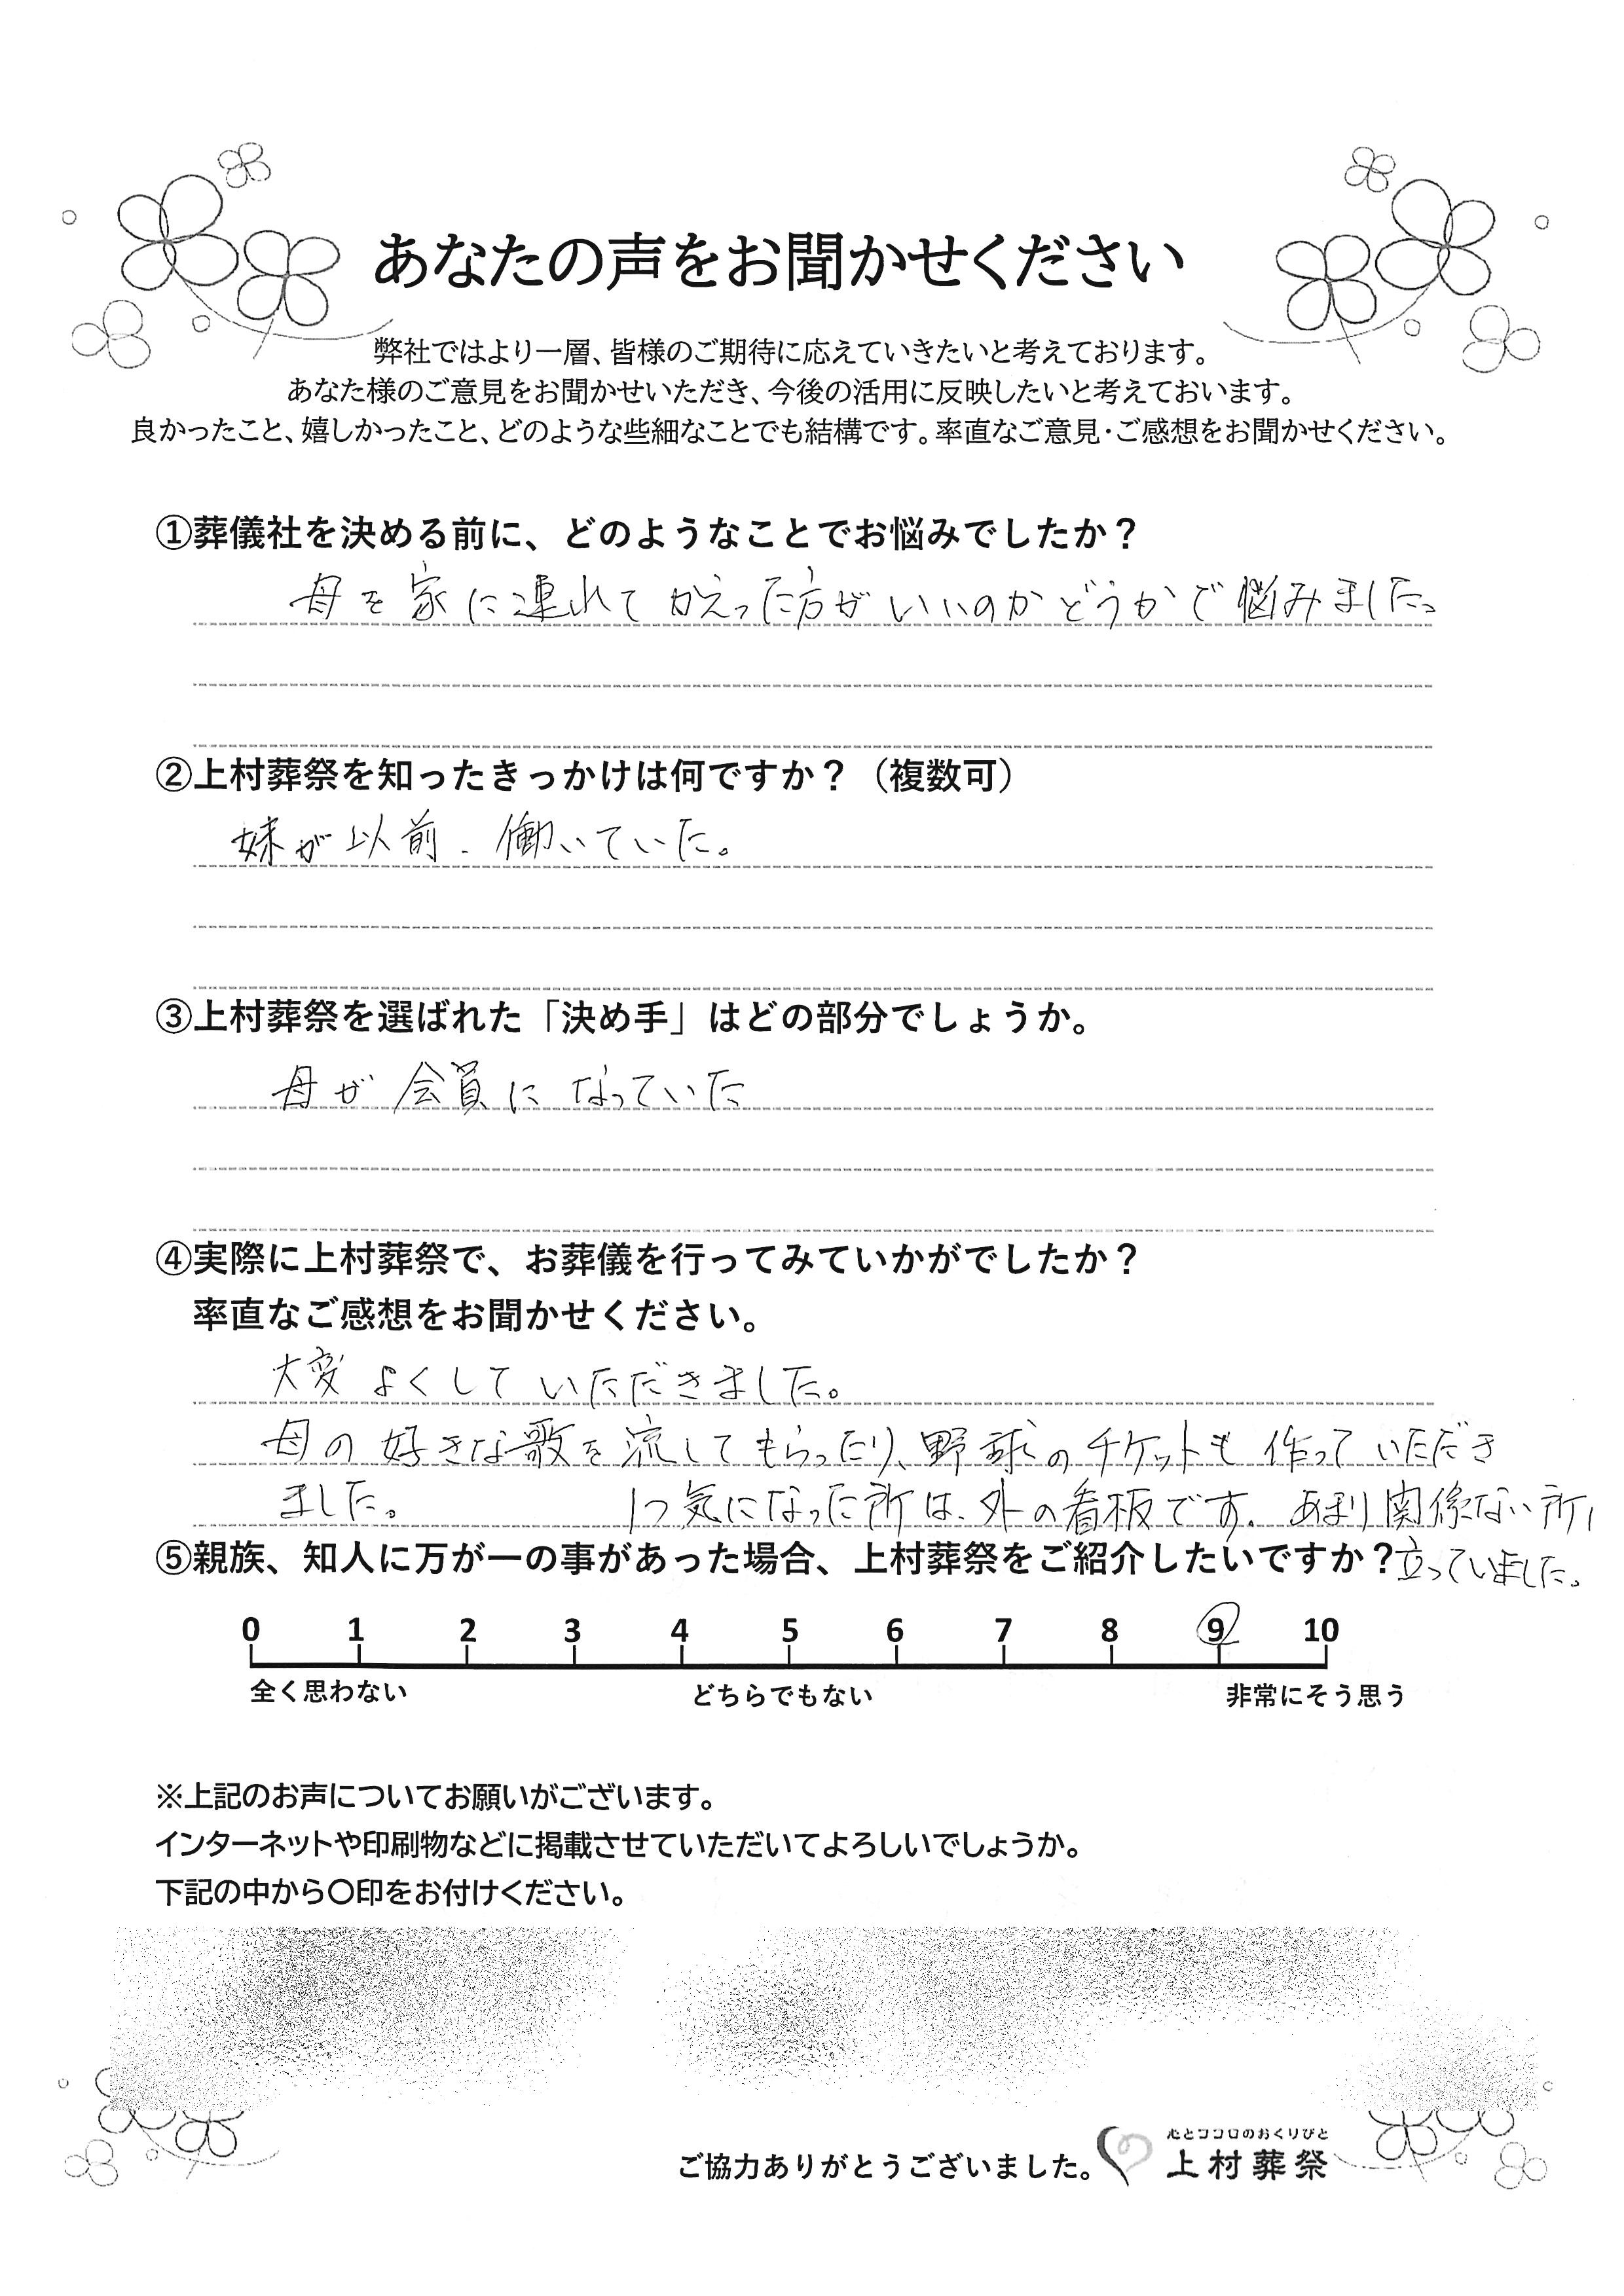 あなたの声をお聞かせください
弊社ではより一層、皆様のご期待に応えていきたいと考えております。
あなた様のご意見をお聞かせいただき、今後の活用に反映したいと考えておいます。
良かったこと、嬉しかったこと、どのような些細なことでも結構です。率直なご意見・ご感想をお聞かせください。
①葬儀社を決める前に、どのようなことでお悩みでしたか？
母を家に連れてかえった方がいいのかどうかで悩みました。
②上村葬祭を知ったきっかけは何ですか？（複数可）
妹が以前、働いていた。
③上村葬祭を選ばれた「決め手」はどの部分でしょうか。
母が会員になっていた
④実際に上村葬祭で、お葬儀を行ってみていかがでしたか？
率直なご感想をお聞かせください。
大変よくしていただきました。
母の好きな歌を流してもらったり、野球のチケットも作っていただき
ました。 1つ気になった所は、外の看板です。あまり関係ない所に
⑤親族、知人に万が一の事があった場合、上村葬祭をご紹介したいですか？立っていました。
0 1 2 3 4 5 6 7 8 9 10
全く思わない どちらでもない 非常にそう思う
※上記のお声についてお願いがございます。
インターネットや印刷物などに掲載させていただいてよろしいでしょうか。
下記の中から〇印をお付けください。
心とココロのおくりびと
ご協力ありがとうございました。 上村葬祭